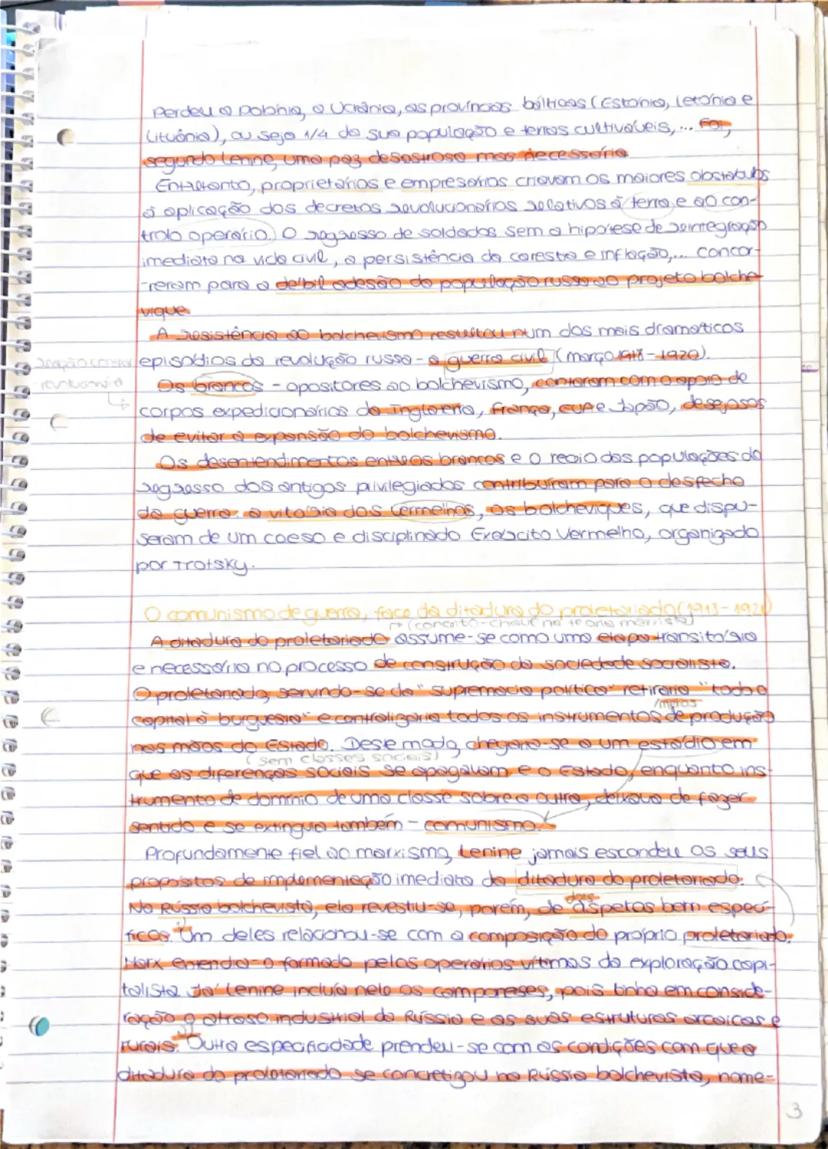 Perdeu a Polónia, a Ucrânia, as províncias bálticas (Estónia, Letónia e
Lituânia), ou seja 1/4 da sua população e terras cultiváveis,... Foi,
segundo Lenine, uma paz desastrosa mas necessária
Entretanto, proprietários e empresários criavam os maiores obstáculos
à aplicação dos decretos revolucionários relativos à terra e ao con-
trolo operário. O regresso de soldados sem a hipótese de reintegração
imediata na vida civil, a persistência da carestia e inflação,... concor-
-reram para a débil adesão da população russa ao projeto bolche
vique.
A resistência ao bolchevismo resultou num dos mais dramáticos
episódios da revolução russa - a guerra civil (março 1918 - 1920).
Os brancos - opositores ao bolchevismo, contaram com o apoio de
corpos expedicionários da Inglaterra, França, EUA e Japão, desejosos
de evitar a expansão do bolchevismo.
Os desentendimentos entre os brancos e o receio das populações do
regresso dos antigos privilegiados contribuíram para o desfecho
da guerra: a vitória dos vermelhos, os bolcheviques, que dispu-
seram de um coeso e disciplinado Exército Vermelho, organizado
por Trotsky.
O comunismo de guerra, face da ditadura do proletariado (1918 - 1921)
(conceito-chave na teoria marxista)
A ditadura do proletariado assume-se como uma etapa transitória
e necessária no processo de construção da sociedade socialista.
O proletariado, servindo-se da "supremacia política" retiraria "todo o
capital à burguesia" e centralizaria todos os instrumentos de produção
/meios
nas mãos do Estado. Desse modo, chegaria-se a um estádio em
(sem classes sociais)
que as diferenças sociais se apagavam e o Estado, enquanto ins-
trumento de domínio de uma classe sobre a outra, deixava de fazer
sentido e se extinguia também - comunismo.
Profundamente fiel ao marxismo, Lenine jamais escondeu os seus
propósitos de implementação imediata da ditadura do proletariado.
Na Rússia bolchevista, ela revestiu-se, porém, de dois aspetos bem especí-
ficos. Um deles relacionou-se com a composição do próprio proletariado.
Marx entendia-o formado pelos operários vítimas da exploração capi-
talista. Já Lenine incluía nele os camponeses, pois tinha em conside-
ração o atraso industrial da Rússia e as suas estruturas arcaicas e
rurais. Outra especificidade prendeu-se com as condições com que a
ditadura do proletariado se concretizou na Rússia bolchevista, nome-
3